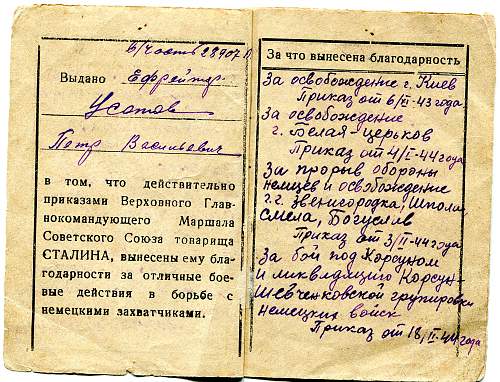 в/часть 28907
Выдано Ефрейтор
Усатов
Петр Васильевич
в том, что действительно
приказами Верховного Глав-
нокомандующего Маршала
Советского Союза товарища
СТАЛИНА, вынесены ему бла-
годарности за отличные бое-
вые действия в борьбе с
немецкими захватчиками.
За что вынесена благодарность
За освобождение г. Киев
Приказ от 6/XI-43 года.
За освобождение
г. Белая-церьков
Приказ от 4/I-44 года
За прорыв обороны
немцев и освобождение
г.г. Звенигородка, Шпола,
Смела, Богуслав
Приказ от 3/II-44 года
За бой под Корсуном
и ликвидацию Корсун-
Шевченковской групировки
немецких войск
Приказ от 18/II-44 года